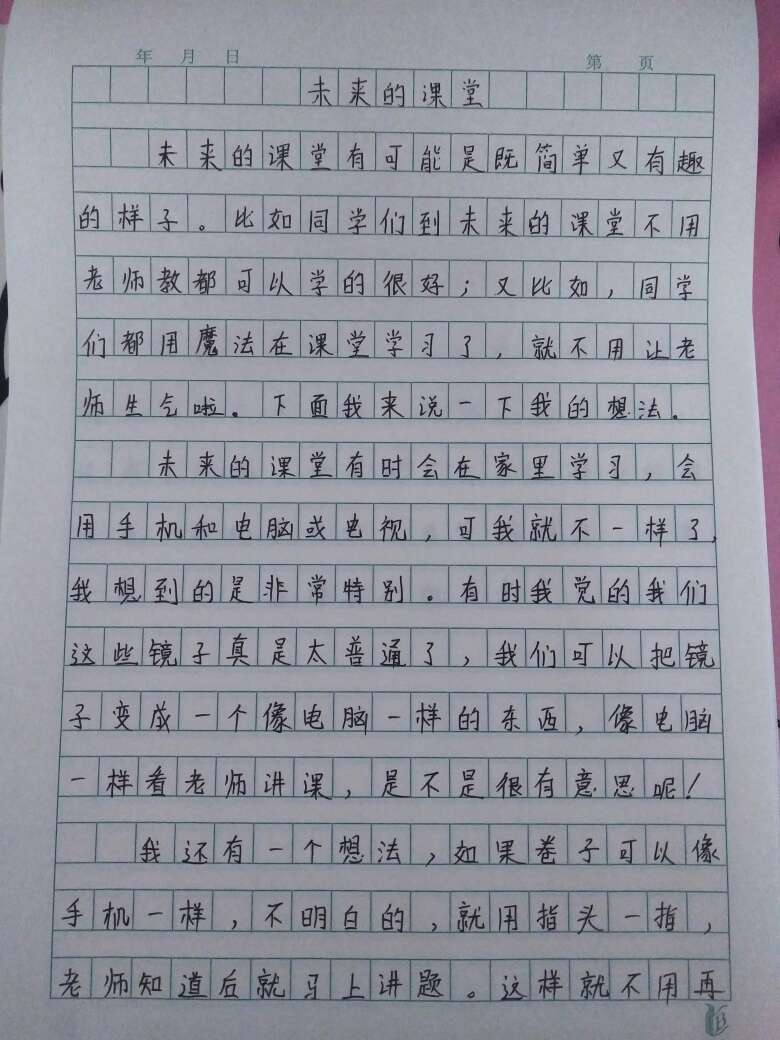 年 月 日 第 页
未来的课堂
未来的课堂有可能是既简单又有趣
的样子。比如同学们到未来的课堂不用
老师教都可以学的很好；又比如，同学
们都用魔法在课堂学习了，就不用让老
师生气啦。下面我来说一下我的想法。
未来的课堂有时会在家里学习，会
用手机和电脑或电视，可我就不一样了，
我想到的是非常特别。有时我觉的我们
这些镜子真是太普通了，我们可以把镜
子变成一个像电脑一样的东西，像电脑
一样看老师讲课，是不是很有意思呢！
我还有一个想法，如果卷子可以像
手机一样，不明白的，就用指头一指，
老师知道后就马上讲题。这样就不用再